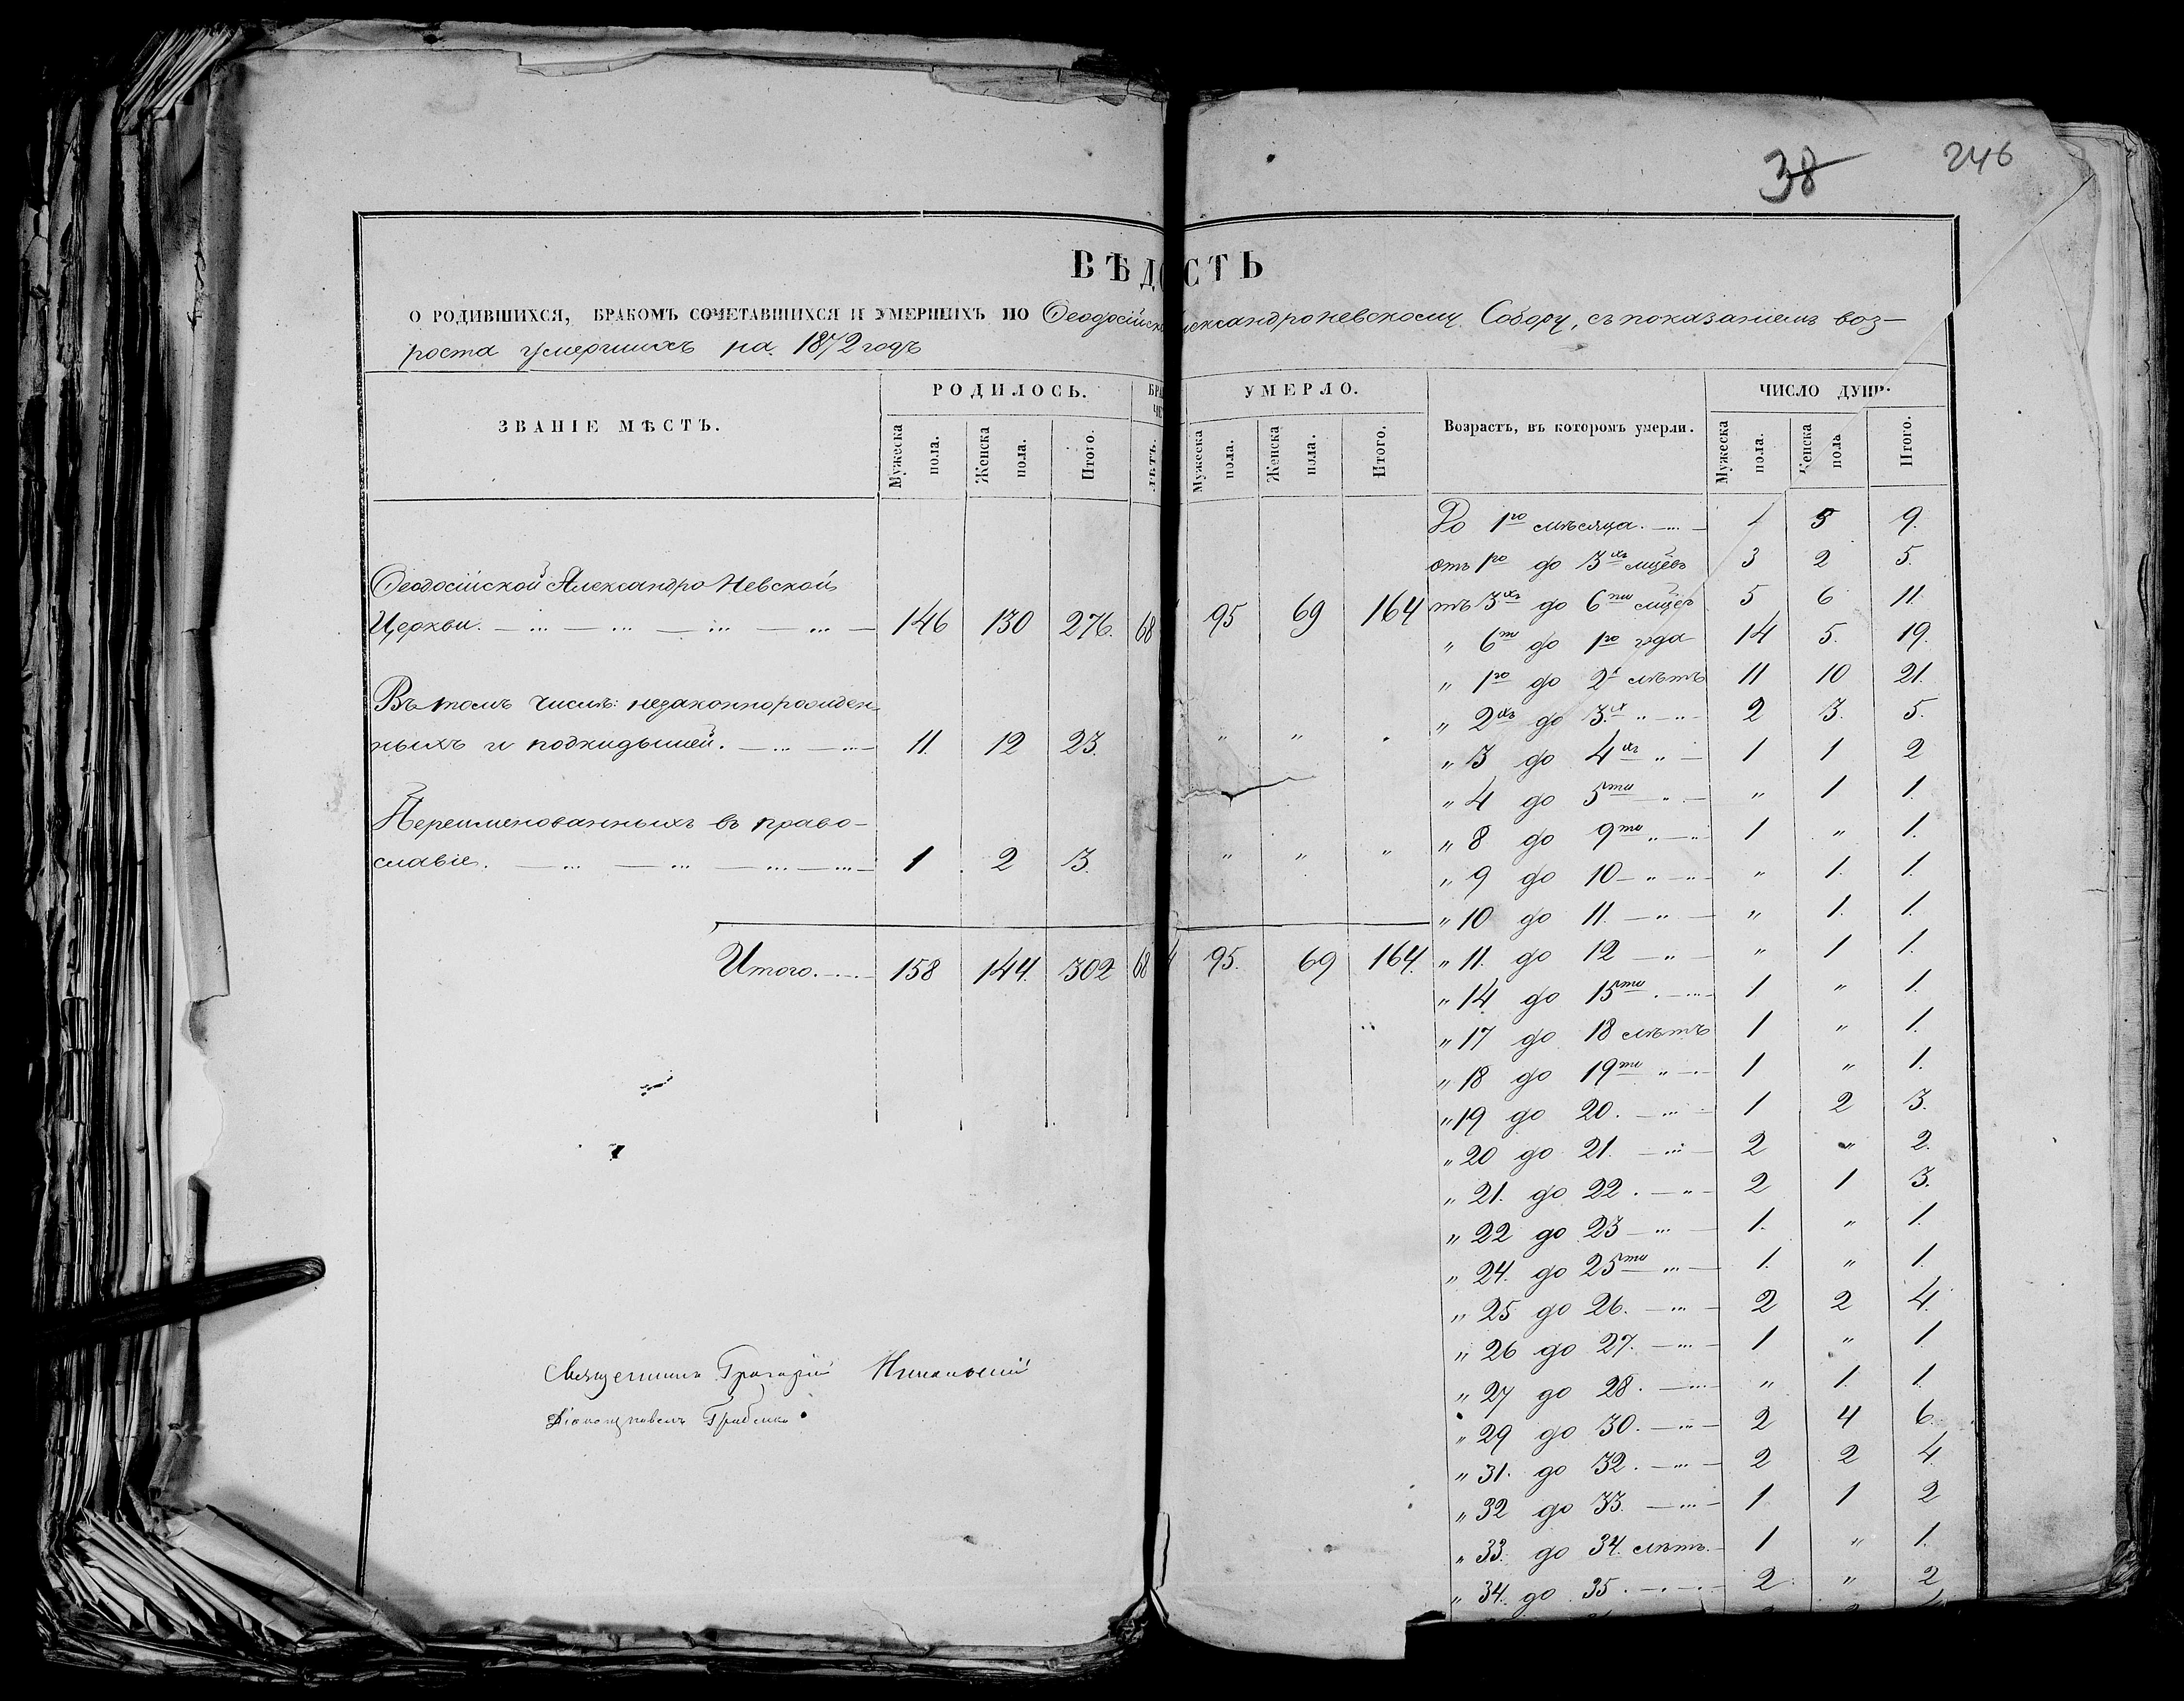 38 246
ВѢДОСТЬ
О РОДИВШИХСЯ, БРАКОМЪ СОЧЕТАВШИХСЯ И УМЕРШИХЪ ПО Ѳеодосійск лександроневскому Собору, съ показаніемъ воз-
роста умершихъ на 1872 годъ
ЗВАНІЕ МѢСТЪ. РОДИЛОСЬ. УМЕРЛО. Возрастъ, въ которомъ умерли. ЧИСЛО ДУШЪ.
Мужеска пола. Женска пола. Итого. Мужеска пола. Женска пола. Итого. Мужеска пола. Женска пола. Итого.
Ѳеодосійской Александро Невской
Церкви. 146 130 276. 68 95 69 164
Въ томъ числѣ: незаконнорожден-
ныхъ и подкидышей. 11. 12 23. " "
Переименованныхъ въ право-
славіе. 1 2 3. " " "
Итого. 158 144. 302 68 95. 69 164.
Священникъ Григорій
До 1го мѣсяца. 5 9.
отъ 1го до 3хъ мцевъ 3 2 5.
тъ 3хъ до 6ти мцев 5 6 11.
" 6ти до 1го года 14 5. 19.
" 1го до 2х лѣтъ 11 10 21.
" 2хъ до 3.х " " 2 3. 5.
" 3 до 4хъ " 1 1 2
" 4 до 5ти " " 1 1.
" 8 до 9ти " " 1 " 1.
" 9 до 10 " " " 1. 1.
" 10 до 11. " " 1. 1.
" 11. до 12 " " 1 1.
" 14 до 15ти 1 " 1.
" 17 до 18 лѣтъ 1 " 1.
" 18 до 19ти " 1 " 1.
" 19 до 20. 1 2 3.
" 20 до 21. 2 " 2.
" 21. до 22. " 2 1 3.
" 22 до 23 1. " 1.
" 24. до 25ти 1. " 1.
" 25 до 26. 2 2 4.
" 26 до 27. 1 " 1
" 27 до 28. " 1. 1.
" 29 до 30. 2 4 6.
" 31. до 32. 2 2 4.
" 32 до 33. 1 1 2
" 33. до 34. лѣтъ. 1 " 1.
" 34. до 35. 2. " 2